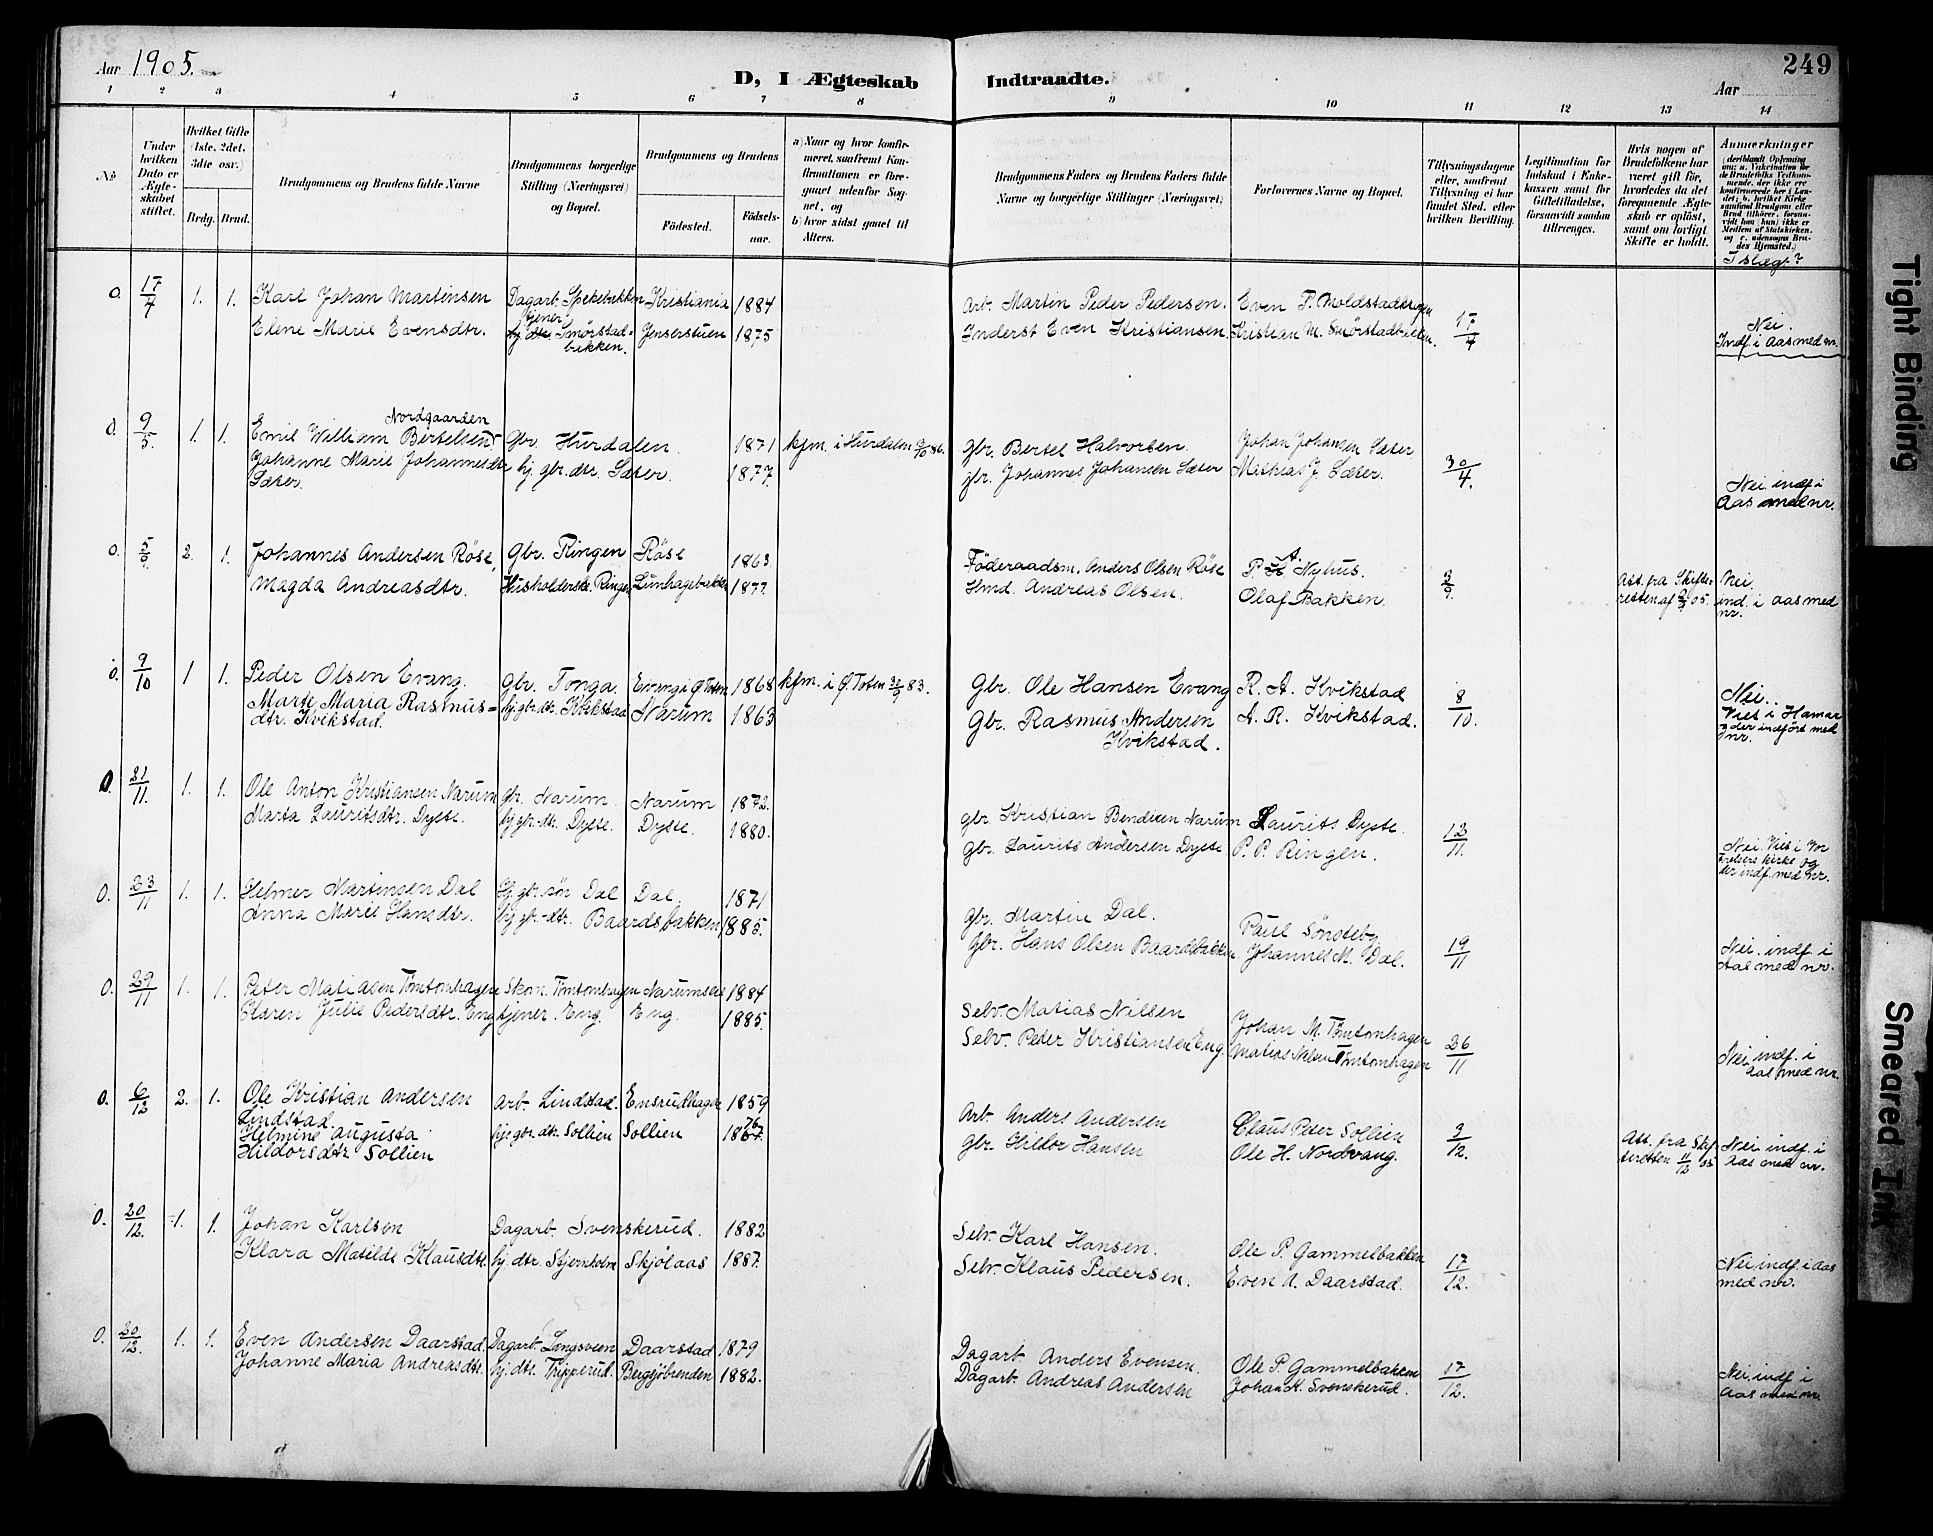 Aar 1905.
D, I Ægteskab Indtraadte.
249
Aar
1 2 3 4 5 6 7 8 9 10 11 12 13 14
No
Under hvilken Dato er Ægteskabet stiftet.
Hvilket Gifte (1ste, 2det, 3die osv.)
Brdg. Brud.
Brudgommens og Brudens fulde Navne
Brudgommens borgerlige Stilling (Næringsvei) og Bopæl.
Brudgommens og Brudens
Fødested.
Fødsels-aar.
a) Naar og hvor konfirmeret, saafremt Konfirmationen er foregaaet udenfor Sognet, og
b) hvor sidst gaaet til Alters.
Brudgommens Faders og Brudens Faders fulde Navne og borgerlige Stillinger (Næringsvei)
Forlovernes Navne og Bopæl.
Tillysningsdagene eller, saafremt Tillysning ei har fundet Sted, efter hvilken Bevilling.
Legitimation for Indskud i Enkekassen samt for Giftetilladelse, forsaavidt saadan tiltrænges.
Hvis nogen af Brudefolkene har været gift før, hvorledes da det foregaaende Ægteskab er opløst, samt om lovligt Skifte er holdt.
Anmærkninger
I slægt?
O. 17/4 1. 1. Karl Johan Martinsen Dagarb. Spekebakken Kristiania 1884 Arb. Martin Peder Pedersen. Even P. Moldstadskogen 17/4
Elene Marie Evensdtr. tjener Smörstad-bakken. Jenserstuen 1875 Inderst Even Kristiansen Kristian M. Smörstadbakken. Nei. Indf. i Aas med nr.
O. 9/5 1. 1. Emil William Bertelsen Nordgaarden Gbr. Hurdalen. 1871 kfm. i Hurdalen Gbr. Bertel Halvorsen. Johan Johansen Sæter 30/4.
Johanne Marie Johannesdtr Sæter. hj. gbr. dtr. Sæter. 1877. Gbr. Johannes Johansen Sæter Mathias J. Sæter. Nei. indf. i Aas med nr.
O. 5/9. 2. 1. Johannes Andersen Röse, Gbr. Ringen Röse 1863. Föderaadsm. Anders Olsen Röse P. A. Nyhus. 3/9.
Magda Andreasdtr. Husholderske Ringen Lunhagebakken 1877. Hmd. Andreas Olsen. Olaf Bakken. Att. fra Skifteretten af 05. Nei. ind. i Aas med nr.
O. 9/10 1 1. Peder Olsen Evang. Gbr. Tonga. Evang i Ø. Toten 1868 kfm. i Ø. Toten 30/9 83. Gbr. Ole Hansen Evang R. A. Kvikstad 8/10.
Marte Maria Rasmus-dtr. Kvikstad. hj. gbr. dtr. Kvikstad Narum 1863 Gbr. Rasmus Andersen Kvikstad. A. R. Kvikstad. Nei. Viet i Hamar & der indfört med nr.
O. 21/11. 1. 1. Ole Anton Kristiansen Narum Gbr. Narum. Narum 1872. Gbr. Kristian Bendiksen Narum Laurits Dyste. 12/11.
Marta Lauritsdtr. Dyste. hj. gbr. dtr. Dyste. Dyste. 1880. Gbr. Laurits Andersen Dyste P. P. Ringen. Nei. Viet i Vor Frelsers kirke og der indf. med nr.
O. 23/11 1. 1. Helmer Martinsen Dal Hj. gbr. sön Dal Dal. 1871 Gbr. Martin Dal. Paul Sönsteby 19/11
Anna Marie Hansdtr. hj. gbr.-dtr. Baardsbakken 1885. Gbr. Hans Olsen Baardsbakken Johannes M. Dal. Nei. indf. i Aas med nr.
O. 29/11 1. 1. Peter Matiasen Tömtomhagen Skom. Tömtomhagen Narumseie 1884 Selv. Matias Nilsen Johan M. Tömtomhagen 26/11
Karen Julie Pedersdtr. Eng tjener. Eng. Eng. 1885. Selv. Peter Kristiansen Eng. Matias Nilsen Tömtomhagen Nei. indf. i Aas med nr.
O. 6/12 2. 1. Ole Kristian Andersen Lindstad. Arb. Lindstad. Ensrudhagen 1859 Arb. Anders Andersen Claus Peter Sollien 3/12.
Helmine Augusta Hildorsdtr Sollien hj. gbr. dtr. Sollien Sollien Gbr. Hildor Hansen Ole H. Nordvang. Att. fra Skifteretten 11/12 05 Nei. indf. i Aas med nr.
O. 20/12. 1. 1. Johan Karlsen Dagarb. Svenskerud. 1882 Selv. Karl Hansen. Ole P. Gammelbakken 17/12.
Klara Matilde Klausdtr. hj. dtr. Stjernholm Skjölaas 1887. Selv. Klaus Pedersen. Even A. Daarstad. Nei. indf. i Aas med nr.
O. 20/12. 1. 1. Even Andersen Daarstad. Dagarb. Lingsveen Daarstad 1879 Dagarb. Anders Evensen. Ole P. Gammelbakken 17/12.
Johanne Maria Andreasdtr. hj. dtr. Tripperud. Bergsjöbrenden 1882. Dagarb. Andreas Andersen Johan K. Svenskerud. Nei. indf. i Aas med nr
Tight Binding
Smeared Ink